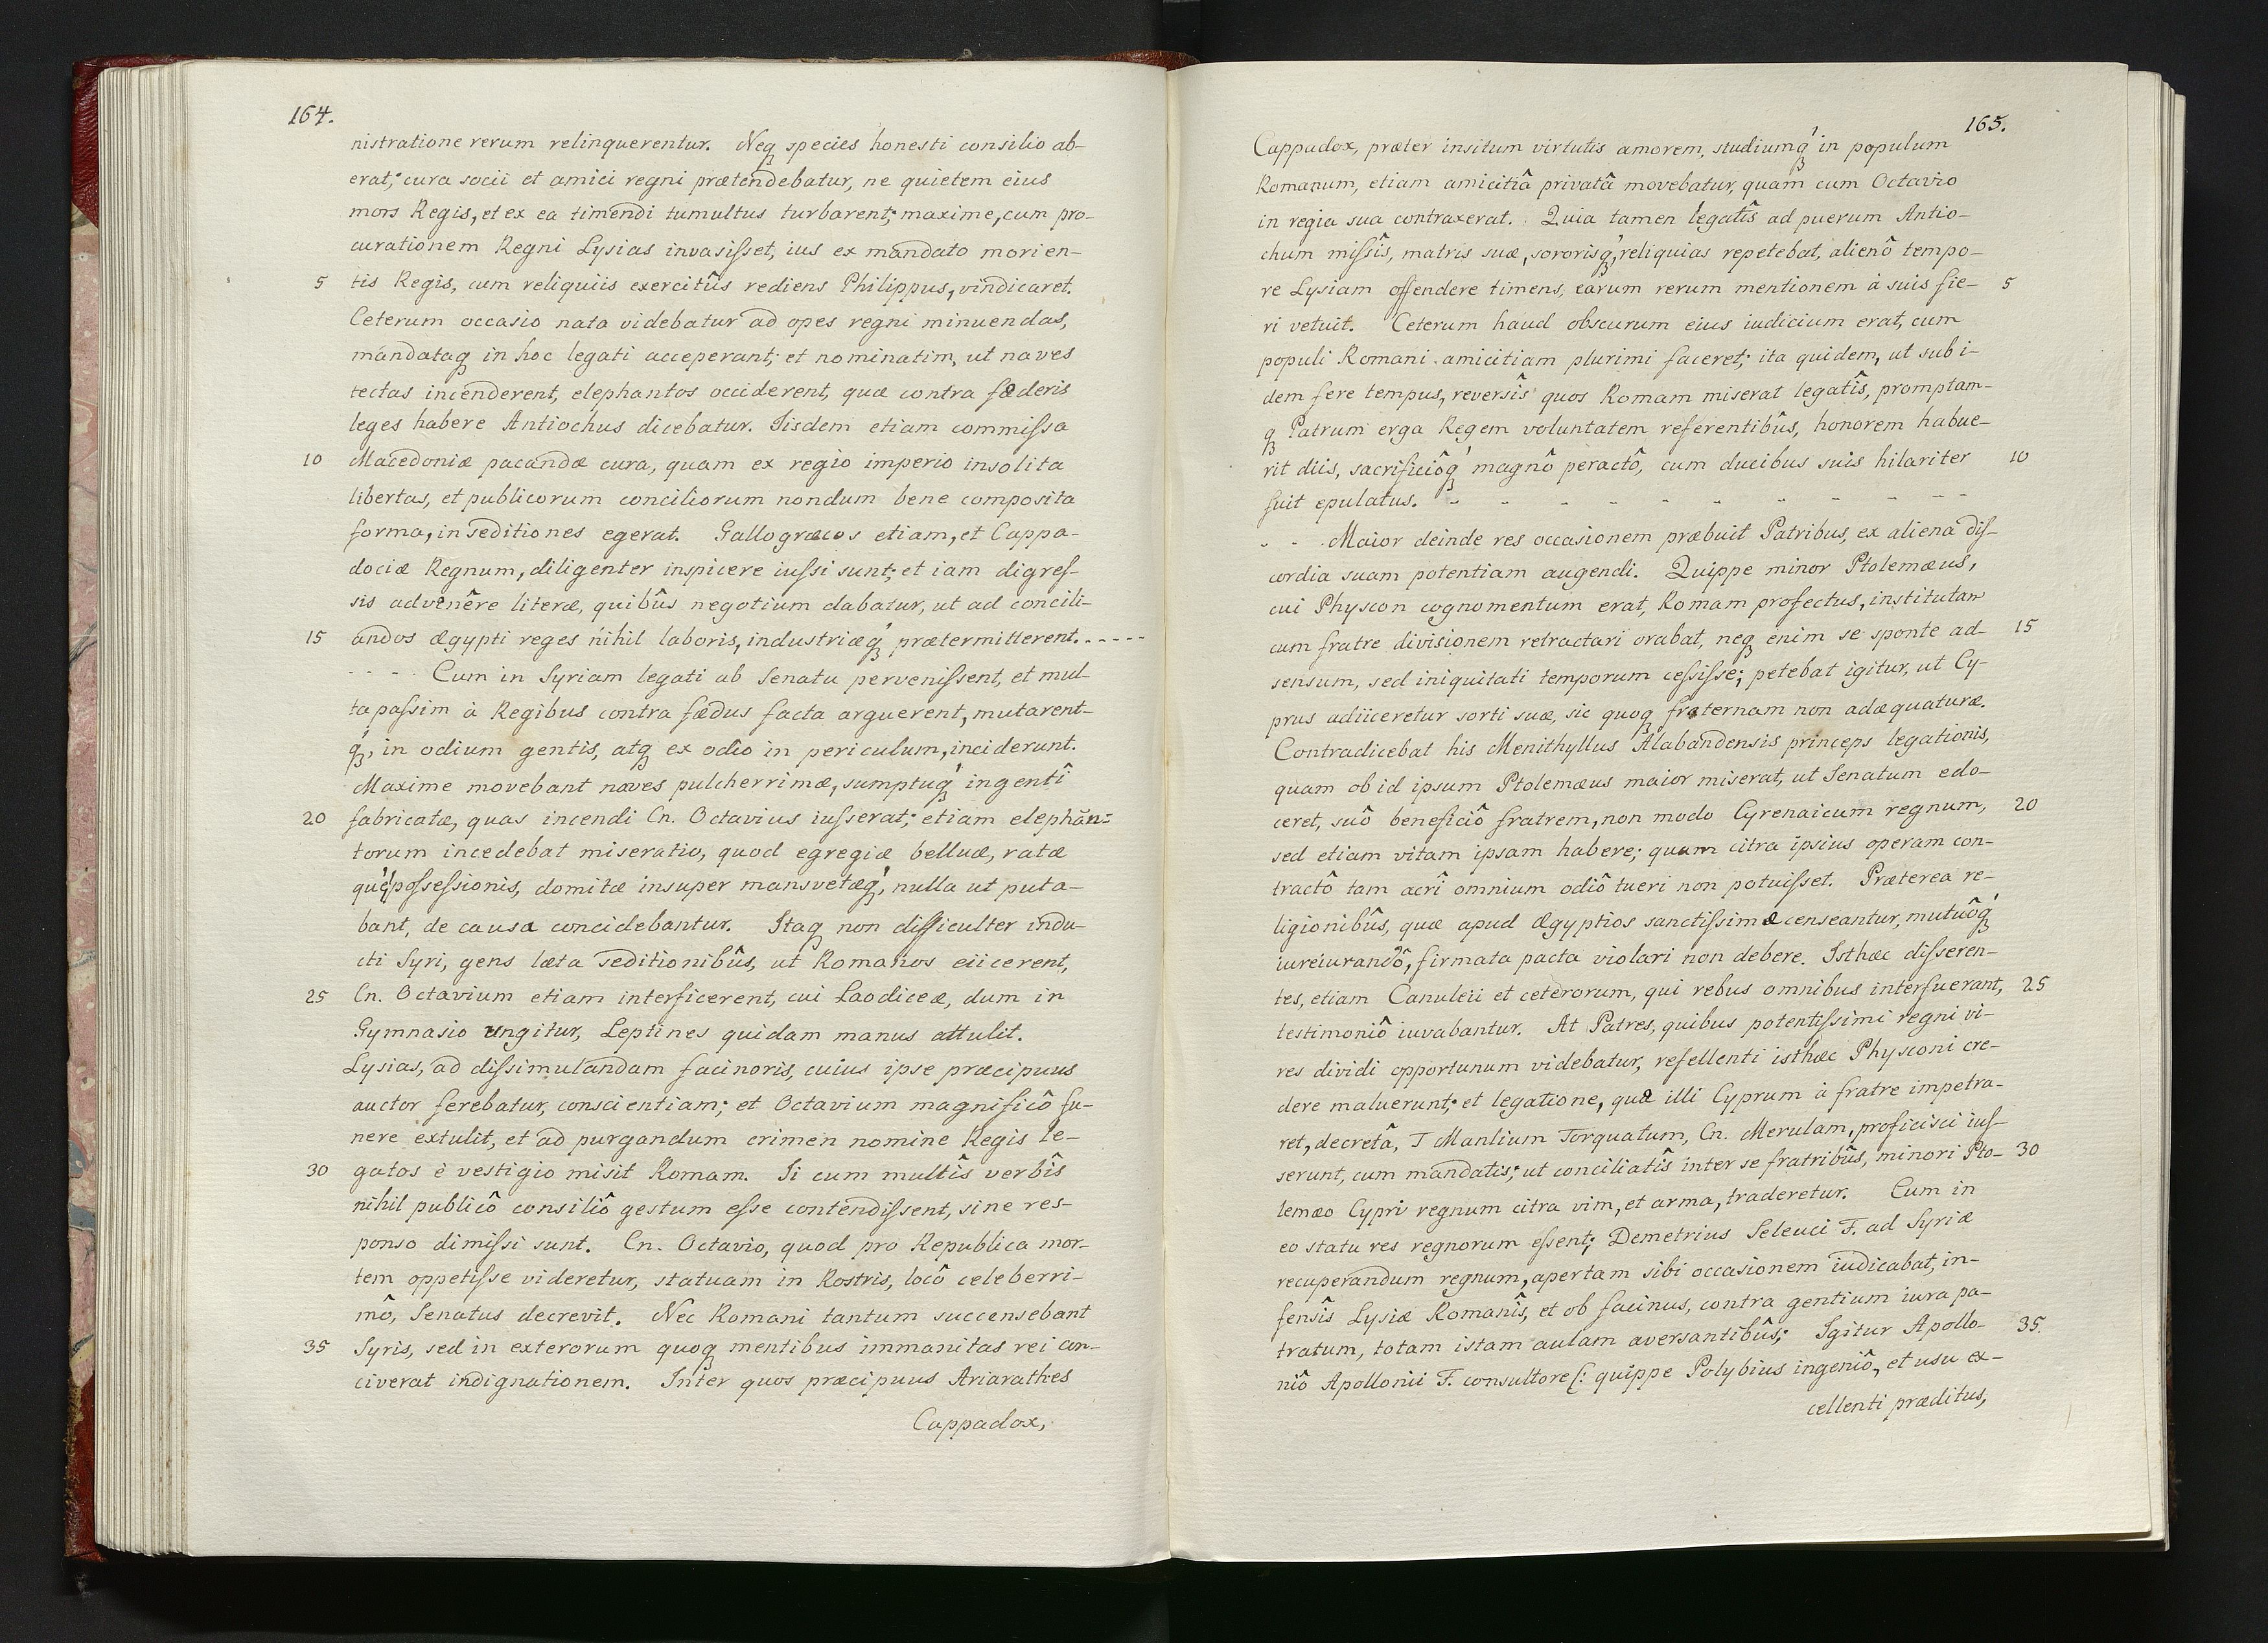 164.
nistratione rerum relinquerentur. Neqȝ species honesti consilio ab-
erat; cura socii et amici regni prætendebatur, ne quietem eius
mors Regis, et ex ea timendi tumultus turbarent; maxime, cum pro-
curationem Regni Lysias invasiſset, ius ex mandato morien-
5 tis Regis, cum reliquiis exercitûs rediens Philippus, vindicaret.
Ceterum occasio nata videbatur ad opes regni minuendas,
mandataqȝ in hoc legati acceperant; et nominatim, ut naves
tectas incenderent, elephantos occiderent, quæ contra fœderis
leges habere Antiochus dicebatur. Iisdem etiam commiſsa
10 Macedoniæ pacandæ cura, quam ex regio imperio insolita
libertas, et publicorum conciliorum nondum bene composita
forma, in seditiones egerat. Gallogræcos etiam, et Cappa-
dociæ Regnum, diligenter inspicere iuſsi sunt; et iam digreſ-
sis advenêre literæ, quibûs negotium dabatur, ut ad concili-
15 andos Ægypti reges nihil laboris, industriæqȝ́ prætermitterent. - - - - -
- - - - Cum in Syriam legati ab Senatu perveniſsent, et mul-
ta paſsim à Regibus contra fœdus facta arguerent, mutarent-
qȝ́, in odium gentis, atqȝ ex odio in periculum, inciderunt.
Maxime movebant naves pulcherrimæ, sumptuqȝ́ ingentî
20 fabricatæ, quas incendi Cn. Octavius iuſserat; etiam elephan-
torum incedebat miseratio, quod egregiæ belluæ, ratæ
quȩ́ poſseſsionis, domitæ insuper mansvetæqȝ́, nulla ut puta-
bant, de causa concidebantur. Itaqȝ non difficulter indu-
cti Syri, gens læta seditionibûs, ut Romanos eiicerent,
25 Cn. Octavium etiam interficerent, cui Laodiceæ, dum in
Gymnasio ungitur, Leptines quidam manus attulit.
Lysias, ad diſsimulandam facinoris, cuius ipse præcipuus
auctor ferebatur, conscientiam; et Octavium magnificô fu-
nere extulit, et ad purgandum crimen nomine Regis le-
30 gatos è vestigio misit Romam. Ii cum multîs verbîs
nihil publicô consiliô gestum eſse contendiſsent, sine res-
ponso dimiſsi sunt. Cn. Octavio, quod pro Republica mor-
tem oppetiſse videretur, statuam in Rostris, locô celeberri-
mô, Senatus decrevit. Nec Romani tantum succensebant
35 Syris, sed in exterorum quoqȝ mentibus immanitas rei con-
civerat indignationem. Inter quos præcipuus Ariarathes
Cappadox,
165.
Cappadox, præter insitum virtutis amorem, studiumqȝ́ in populum
Romanum, etiam amicitiâ privatâ movebatur, quam cum Octavio
in regia sua contraxerat. Quia tamen legatîs ad puerum Antio-
chum miſsîs, matris suæ, sororisqȝ́, reliquias repetebat, alienô tempo-
re Lysiam offendere timens, earum rerum mentionem à suis fie- 5
ri vetuit. Ceterum haud obscurum eius iudicium erat, cum
populi Romani amicitiam plurimi faceret; ita quidem, ut sub i-
dem fere tempus, reversîs quos Romam miserat legatîs, promptam-
qȝ Patrum erga Regem voluntatem referentibûs, honorem habue-
rit diis, sacrificiôqȝ́ magnô peractô, cum ducibus suis hilariter 10
fuit epulatus. - - - - - - - - - -
- - Maior deinde res occasionem præbuit Patribus, ex aliena diſ-
cordia suam potentiam augendi. Quippe minor Ptolemæus,
cui Physcon cognomentum erat, Romam profectus, institutam
cum fratre divisionem retractari orabat, neqȝ enim se sponte ad- 15
sensum, sed iniquitati temporum ceſsiſse; petebat igitur, ut Cy-
prus adiiceretur sorti suæ, sic quoqȝ fraternam non adæquaturæ.
Contradicebat his Menithyllus Alabandensis princeps legationis,
quam ob id ipsum Ptolemæus maior miserat, ut Senatum edo-
ceret, suô beneficiô fratrem, non modo Cyrenaicum regnum, 20
sed etiam vitam ipsam habere; quam citra ipsius operam con-
tractô tam acrî omnium odiô tueri non potuiſset. Præterea re-
ligionibûs, quæ apud Ægyptios sanctiſsimæ censeantur, mutuôqȝ́
iureiurandô, firmata pacta violari non debere. Isthæc diſseren-
tes, etiam Canuleii et ceterorum, qui rebus omnibus interfuerant, 25
testimoniô iuvabantur. At Patres, quibus potentiſsimi regni vi-
res dividi opportunum videbatur, refellenti isthæc Physconi cre-
dere maluerunt; et legatione, quæ illi Cyprum à fratre impetra-
ret, decretâ, T Manlium Torquatum, Cn. Merulam, proficisci iuſ-
serunt, cum mandatis; ut conciliatîs inter se fratribûs, minori Pto- 30
lemæo Cypri regnum citra vim, et arma, traderetur. Cum in
eo statu res regnorum eſsent; Demetrius Seleuci F. ad Syriæ
recuperandum regnum, apertam sibi occasionem iudicabat, in-
fensîs Lysiæ Romanîs, et ob facinus, contra gentium iura pa-
tratum, totam istam aulam aversantibûs; Igitur Apollo- 35.
niô Apollonii F. consultore (: quippe Polybius ingeniô, et usu ex-
cellenti præditus,